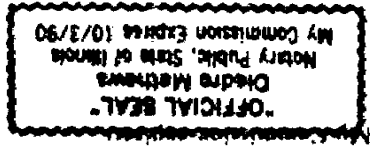 "OFFICIAL SEAL"
Diedre Mathews
Notary Public, State of Illinois
My Commission Expires 10/3/90